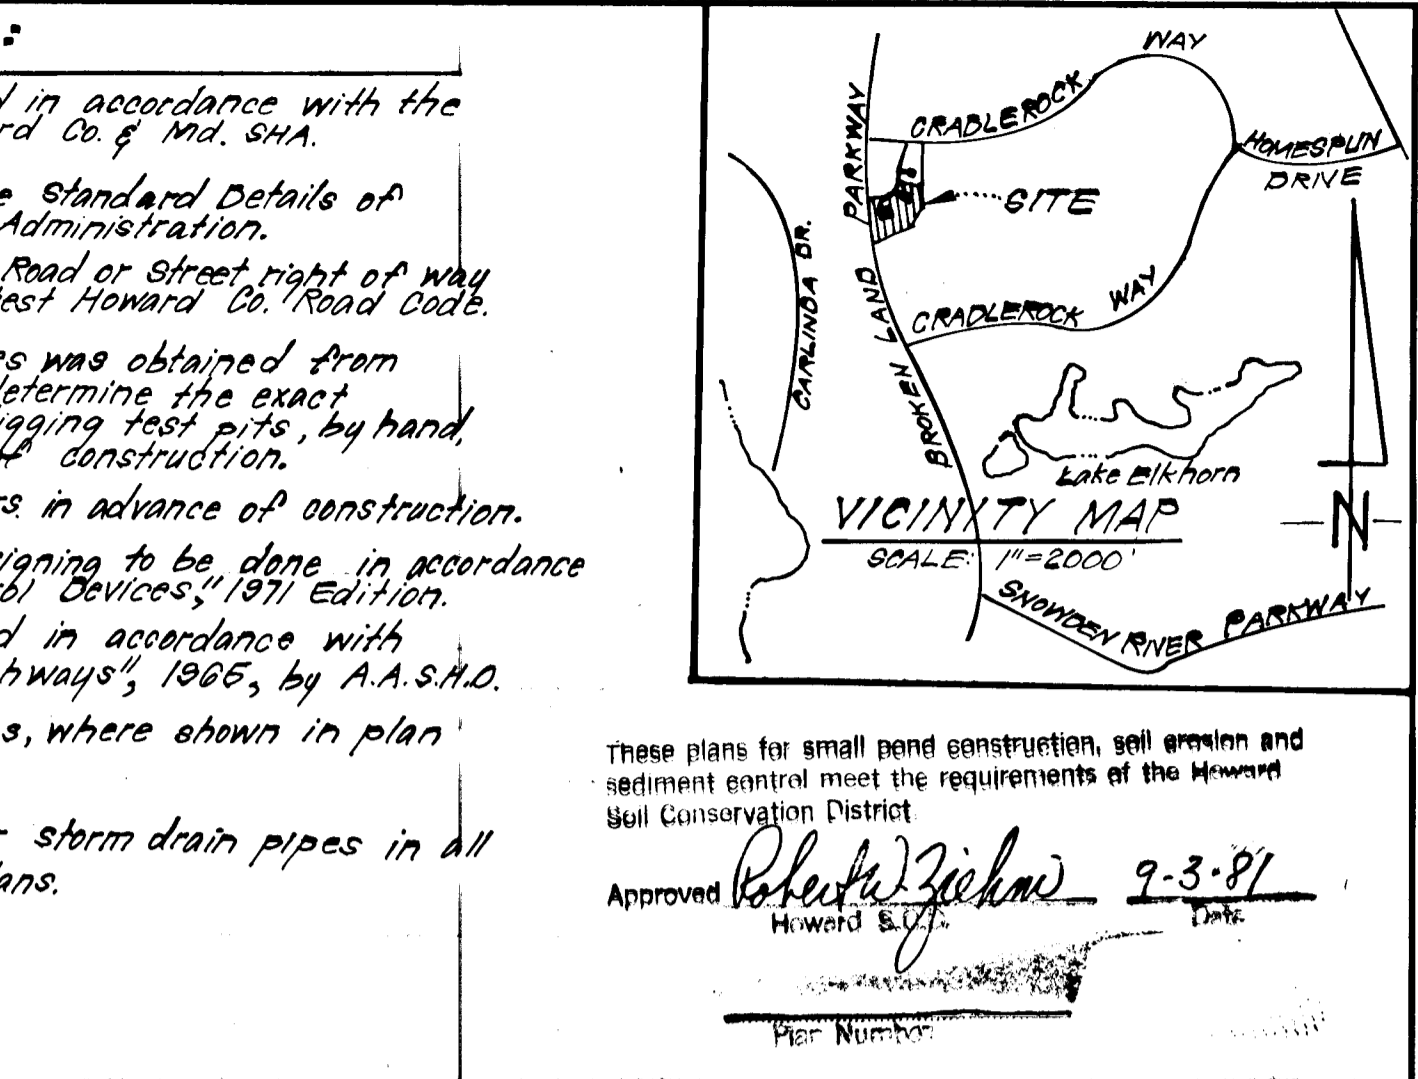 :
d in accordance with the
rd Co. & Md. SHA.
e Standard Details of
Administration.
Road or Street right of way
est Howard Co. Road Code.
es was obtained from
determine the exact
igging test pits, by hand,
of construction.
rs. in advance of construction.
signing to be done in accordance
ol Devices," 1971 Edition.
d in accordance with
hways", 1965, by A.A.S.H.O.
s, where shown in plan
r storm drain pipes in all
ans.
WAY
CRADLEROCK
PARKWAY
HOMESPUN
DRIVE
SITE
CARLINDA DR.
BROKEN LAND
CRADLEROCK WAY
Lake Elkhorn
VICINITY MAP
SCALE: 1"=2000'
N
SNOWDEN RIVER PARKWAY
These plans for small pond construction, soil erosion and
sediment control meet the requirements of the Howard
Soil Conservation District
Approved Robert W. Ziehm 9-3-81
Howard S.C.D. Date
Plan Number